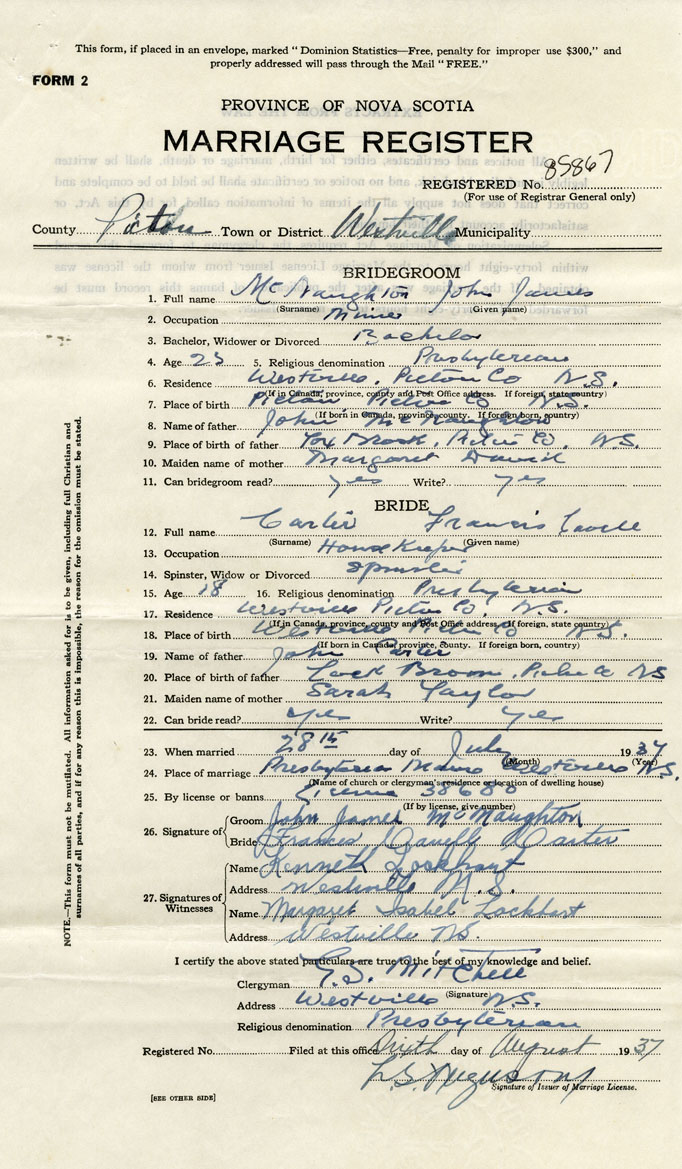 This form, if placed in an envelope, marked "Dominion Statistics—Free, penalty for improper use $300," and
properly addressed will pass through the Mail "FREE."
FORM 2
PROVINCE OF NOVA SCOTIA
MARRIAGE REGISTER
REGISTERED No. 85867
(For use of Registrar General only)
County Pictou Town or District Westville Municipality
BRIDEGROOM
1. Full name McNaughton John James
(Surname) (Given name)
2. Occupation Miner
3. Bachelor, Widower or Divorced Bachelor
4. Age 23 5. Religious denomination Presbyterian
6. Residence Westville, Pictou Co N.S.
(If in Canada, province, county and Post Office address. If foreign, state country)
7. Place of birth Pictou Pictou Co N.S.
(If born in Canada, province, county. If foreign born, country)
8. Name of father John McNaughton
9. Place of birth of father Brook, Pictou Co, N.S.
10. Maiden name of mother Margaret David
11. Can bridegroom read? yes Write? yes
BRIDE
12. Full name Carter Francis Lavell
(Surname) (Given name)
13. Occupation House Keeper
14. Spinster, Widow or Divorced Spinster
15. Age 18 16. Religious denomination Presbyterian
17. Residence Westville Pictou Co, N.S.
(If in Canada, province, county and Post Office address. If foreign, state country)
18. Place of birth Westville Pictou Co N.S.
(If born in Canada, province, county. If foreign born, country)
19. Name of father John Carter
20. Place of birth of father Broom, Pictou Co NS
21. Maiden name of mother Sarah Taylor
22. Can bride read? yes Write? yes
23. When married 28th day of July 1937
(Month) (Year)
24. Place of marriage Presbyterian Manse Westville N.S.
(Name of church or clergyman's residence or location of dwelling house)
25. By license or banns License 38680
(If by license, give number)
26. Signature of
Groom John James McNaughton
Bride Francis Carter
27. Signatures of Witnesses
Name Kenneth Lockhart
Address Westville N.S.
Name Margaret Isabel Lockhart
Address Westville N.S.
I certify the above stated particulars are true to the best of my knowledge and belief.
Clergyman G.S. Mitchell
(Signature)
Address Westville N.S.
Religious denomination Presbyterian
Registered No. Filed at this office Sixth day of August 1937
Signature of Issuer of Marriage License.
[SEE OTHER SIDE]
NOTE.—This form must not be mutilated. All information asked for is to be given, including full Christian and
surnames of all parties, and if for any reason this is impossible, the reason for the omission must be stated.